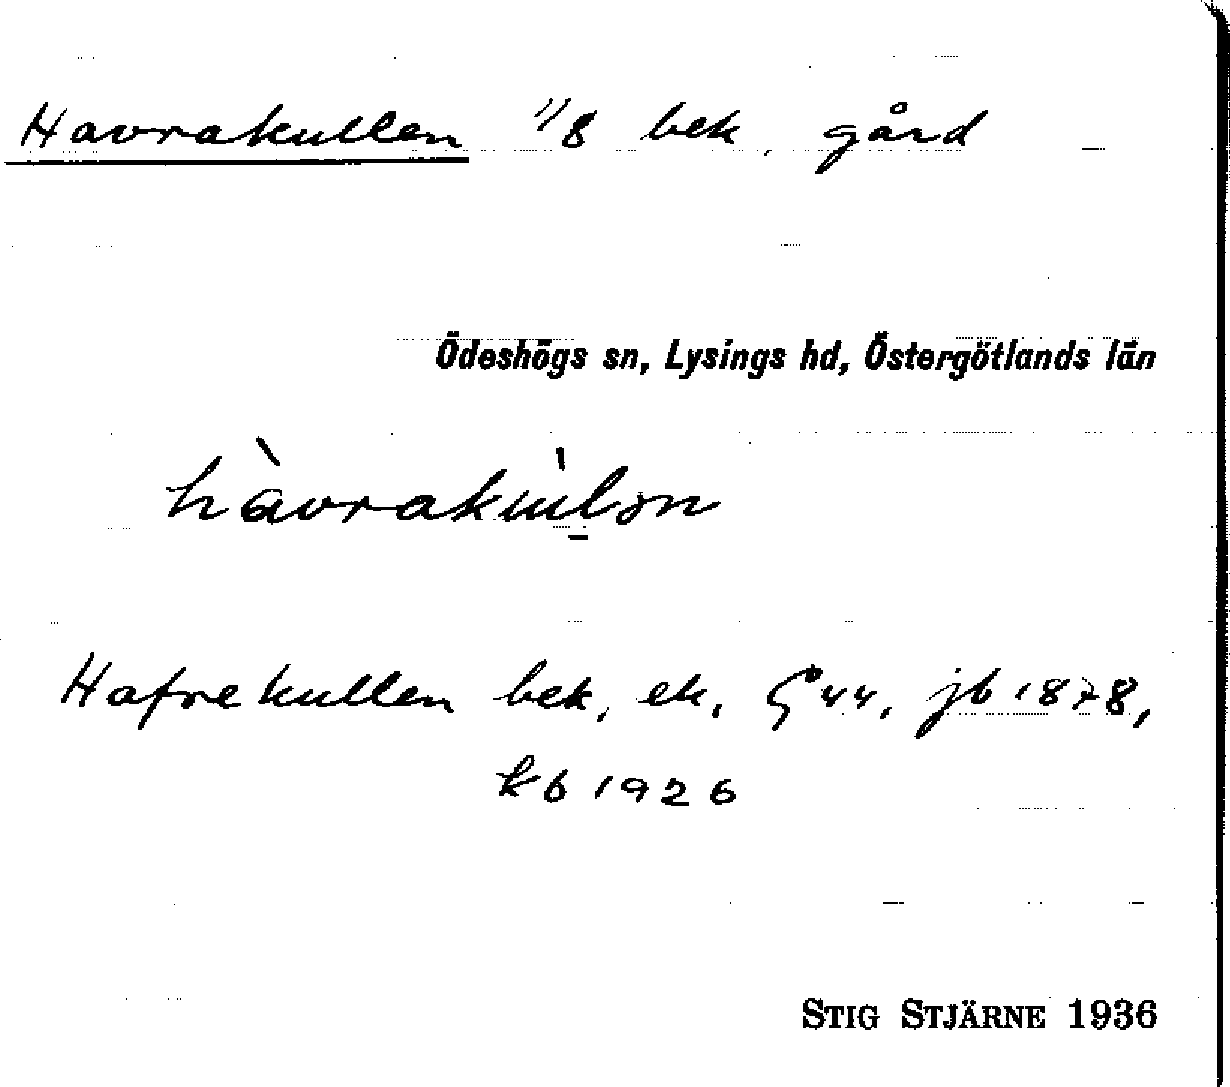 Havrakullen 1/8 bek, gård
Ödeshögs sn, Lysings hd, Östergötlands län
hàvrakùlən
Hafrekullen bek, ek, § 44, jb 1878,
kb 1926
STIG STJÄRNE 1936